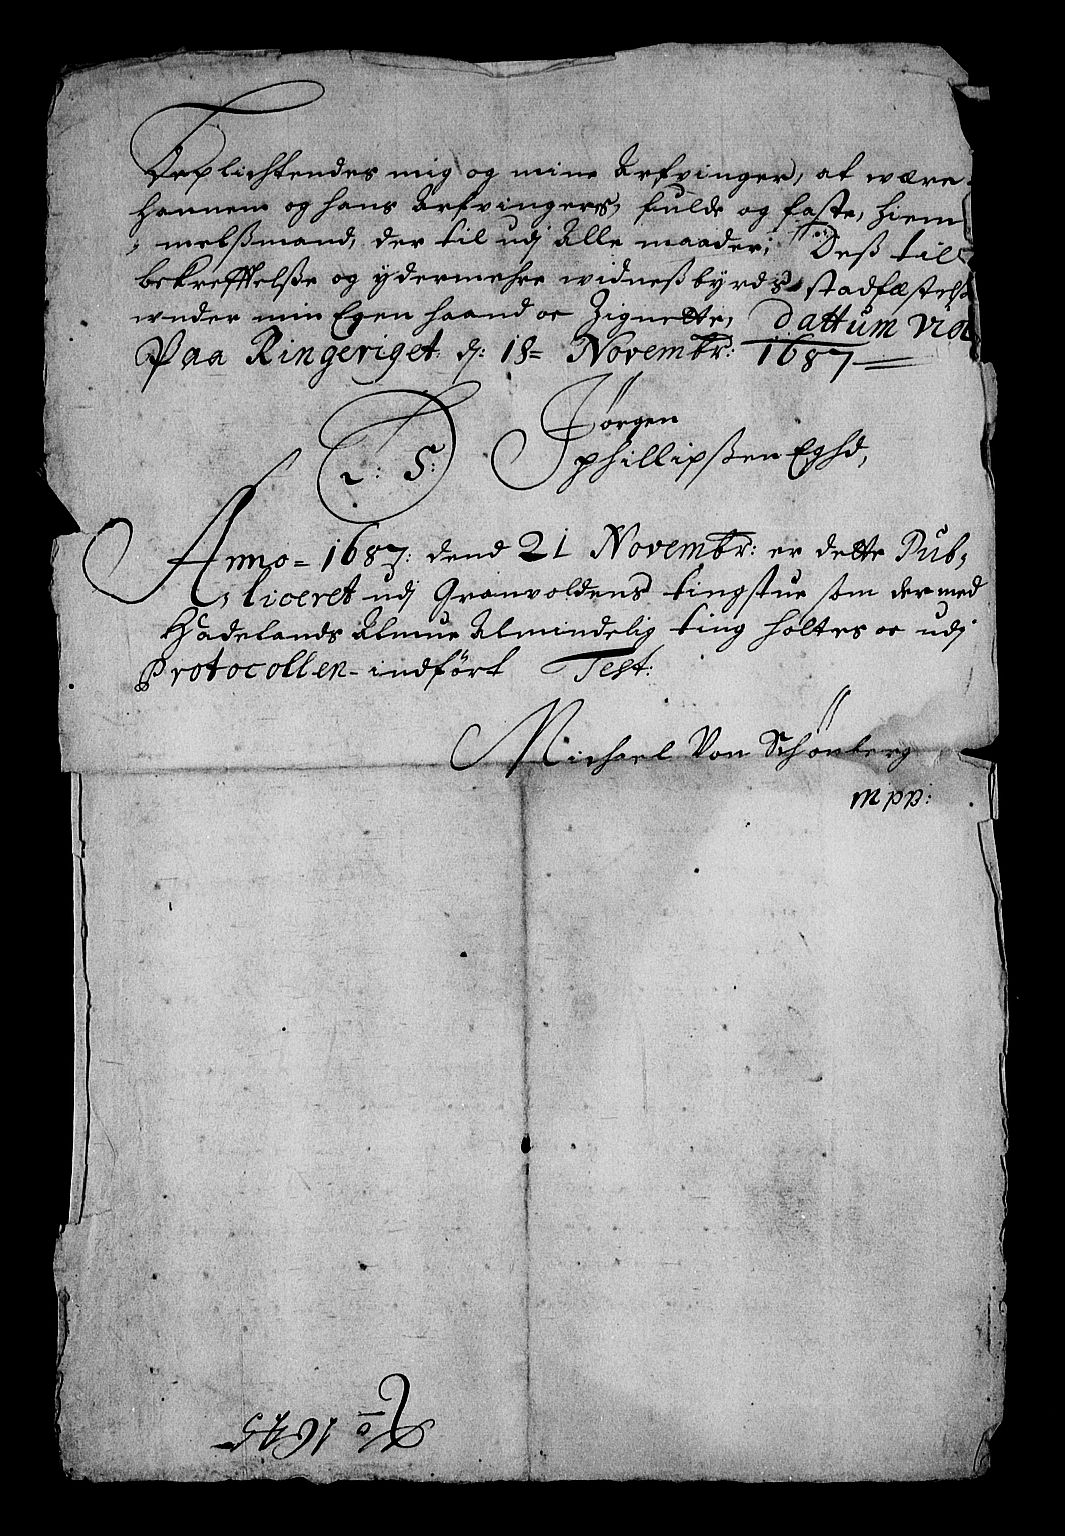 Teplichtendes mig og mine Arfvinger, at være
hannem og hans Arfvingers, fulde og faste, hiem
melsßmand, der til udj Alle maader; Deß til
bekrefftelsße og ydermehre widneßbyrds stadfæstelsß
wnder min Egen haand oc Zignette, Dattum Viol
Paa Ringeriget dj: 18= Novembr: 1687
L: S: Jørgen
phillipßen Eghd,
Anno= 1687: dend 21 Novembr: er dette Pub,
liceret udj Granvoldens tingstue som der med
Hadelands Almue Almindelig ting holtes oc udj
Protocollen indført Test:
Michael Von Schönberg
mpp:
No 1645